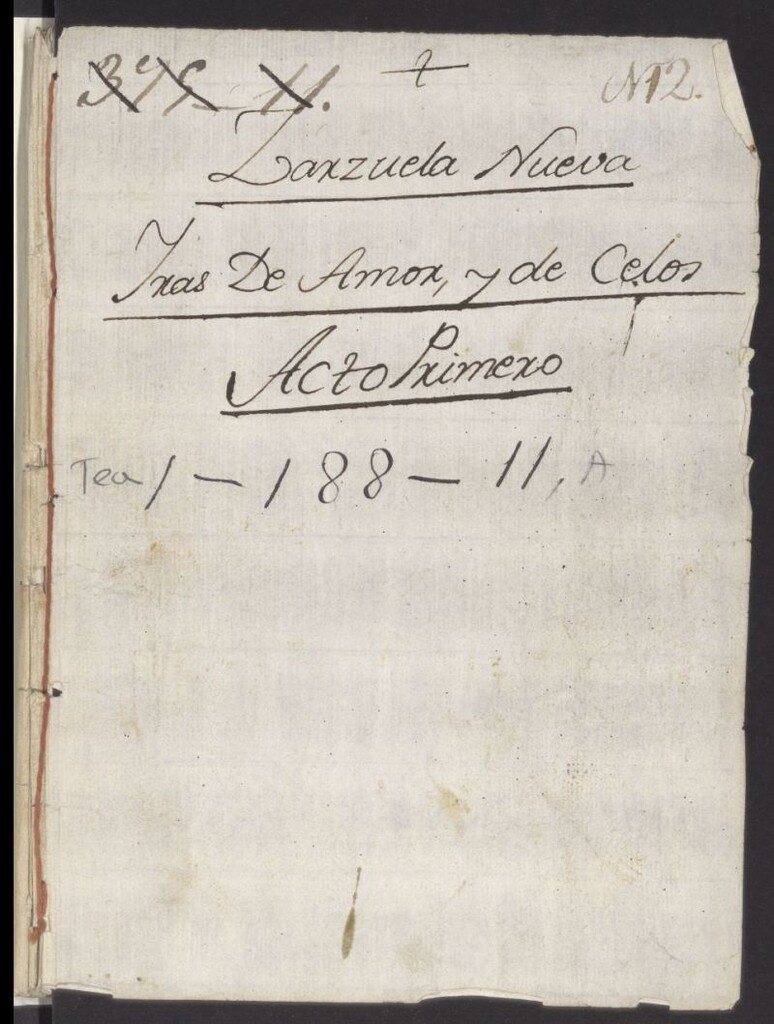 395-11. N12.
Zarzuela Nueva
Iras De Amor, y de Celos
Acto Primero
Tea 1-188-11, A